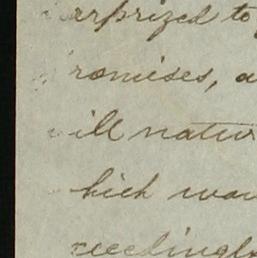 erprized to
romises, a
ill natur
hich wou
xceedingly